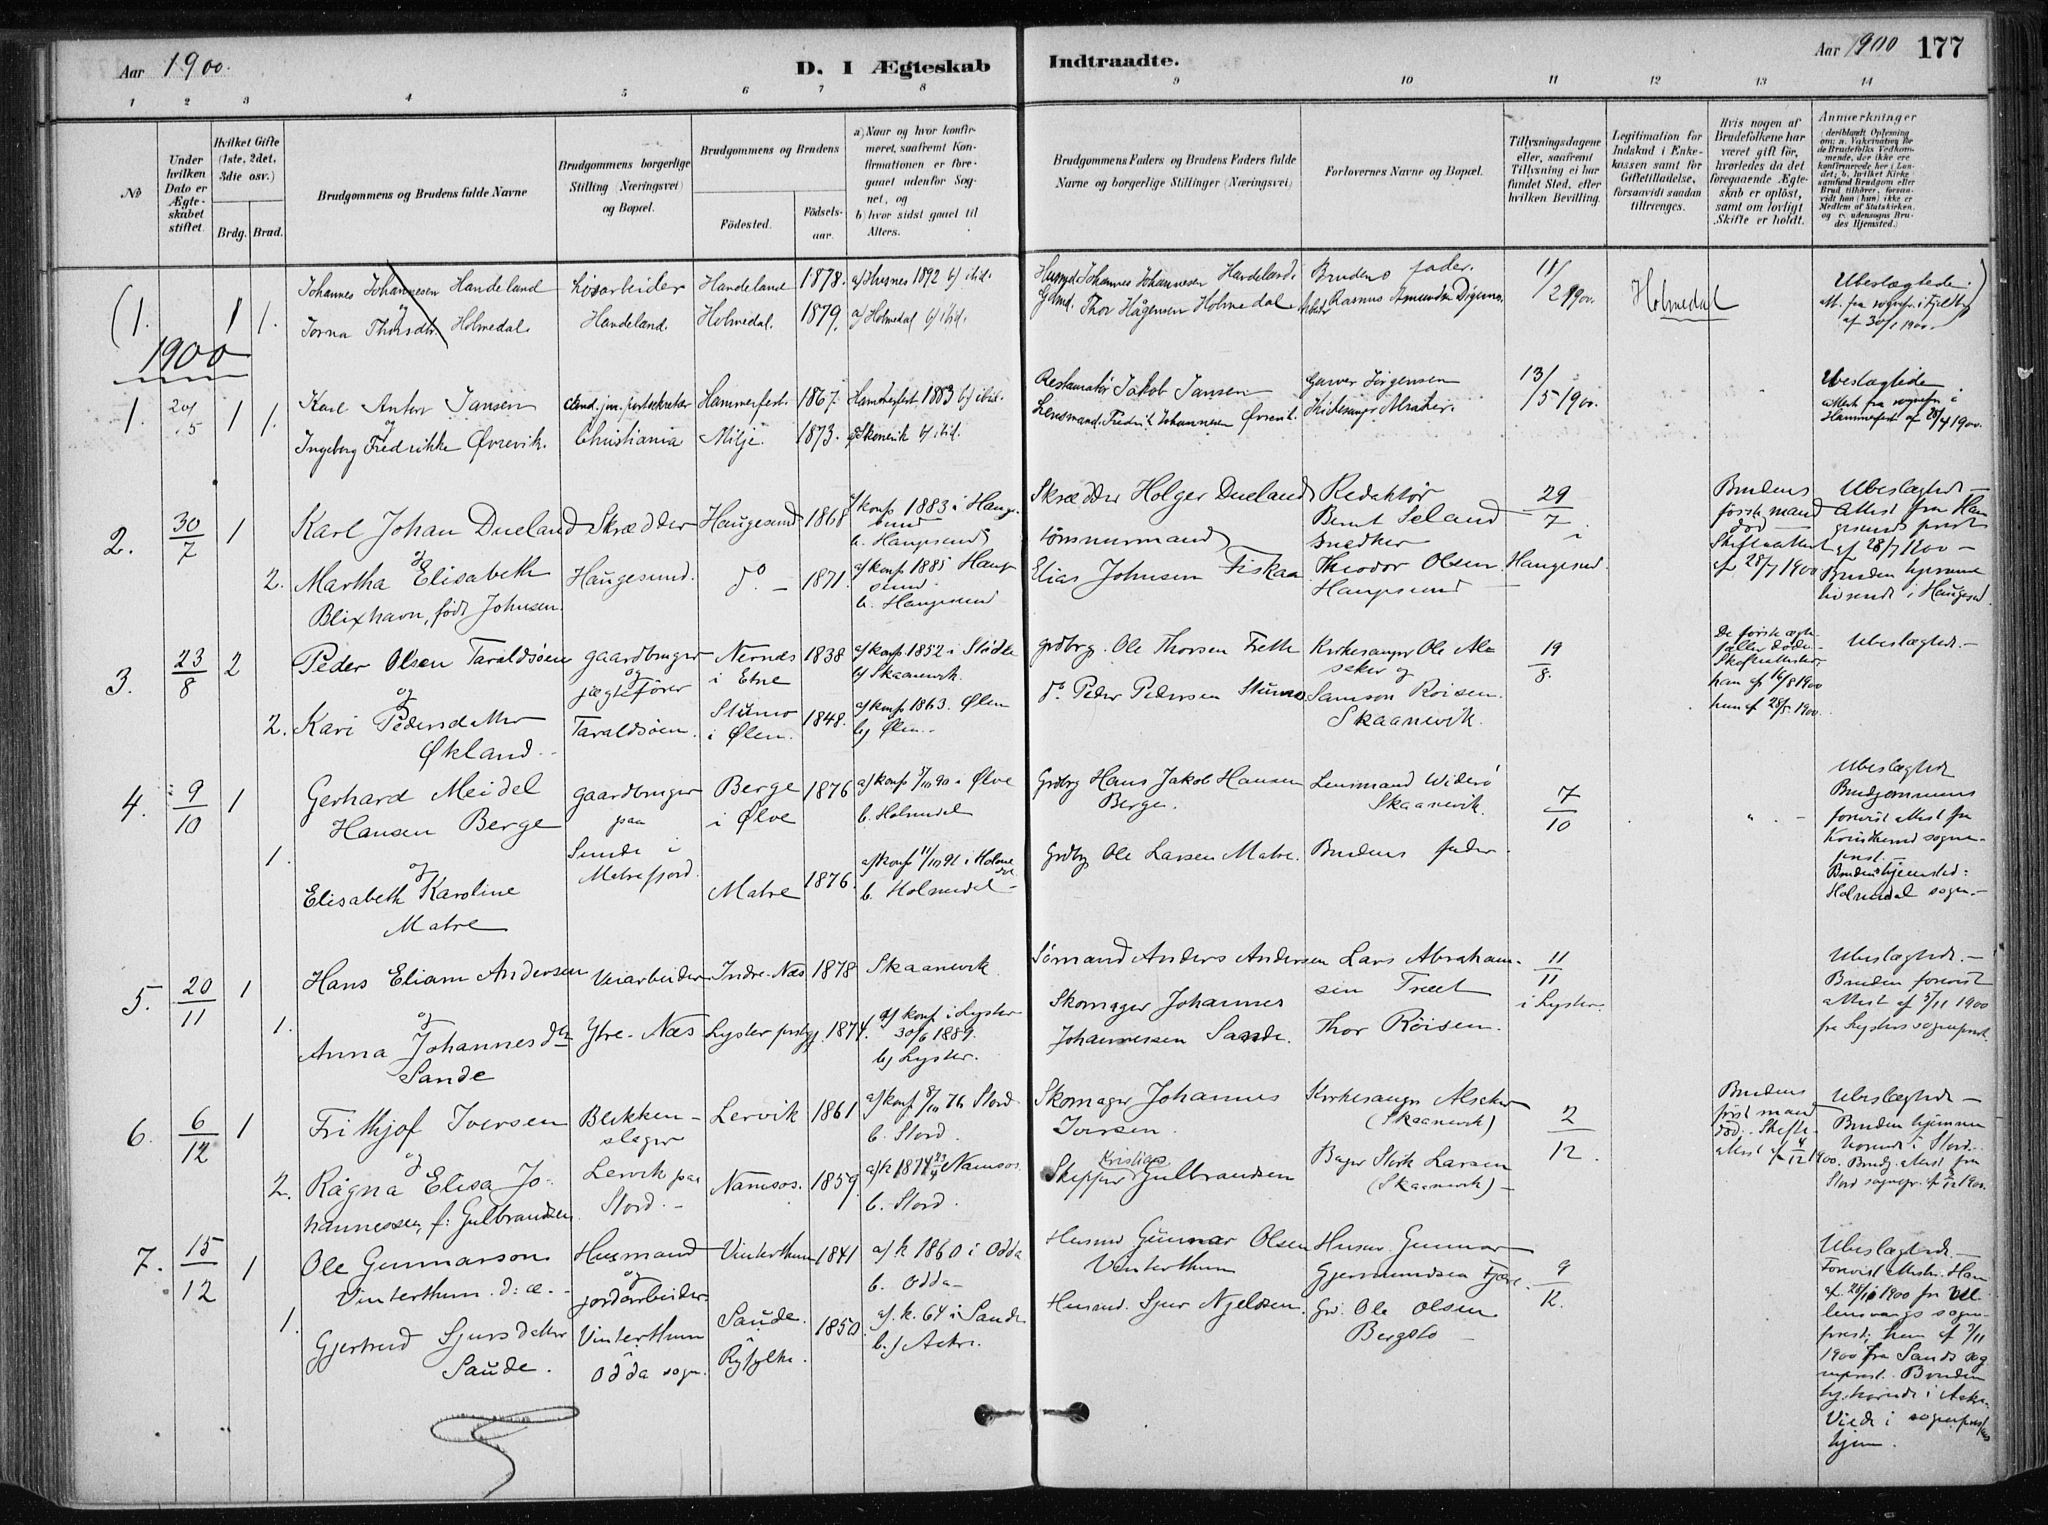 Aar 1900.
D. I Ægteskab Indtraadte.
Aar 1900
177
1 2 3 4 5 6 7 8 9 10 11 12 13 14
No
Under hvilken Dato er Ægteskabet stiftet.
Hvilket Gifte (1ste, 2det, 3die osv.)
Brdg. Brud.
Brudgommens og Brudens fulde Navne
Brudgommens borgerlige Stilling (Næringsvei) og Bopæl.
Brudgommens og Brudens
Födested.
Födsels-aar.
a) Naar og hvor konfirmeret, saafremt Konfirmationen er foregaaet udenfor Sognet, og
b) hvor sidst gaaet til Alters.
Brudgommens Faders og Brudens Faders fulde Navne og borgerlige Stillinger (Næringsvei)
Forlovernes Navne og Bopæl.
Tillysningsdagene eller, saafremt Tillysning ei har fundet Sted, efter hvilken Bevilling.
Legitimation for Indskud i Enkekassen samt for Giftetilladelse, forsaavidt saadan tiltrænges.
Hvis nogen af Brudefolkene har været gift för, hvorledes da det foregaaende Ægteskab er oplöst, samt om lovligt Skifte er holdt.
Anmærkninger
(1. 1 1.
Johannes Johannesen Handeland
og
Torna Thorsdtr Holmedal
Løsarbeider
Handeland.
Handeland 1878.
Holmedal. 1879.
a/ Husnes 1892 b/ ibid.
a/ Holmedal b/ ibid.
Johannes Johannesen Handeland.
Thor Hågensen Holmedal
Brudens fader.
Rasmus Amundsen
11/2 1900.
Holmedal
Ubeslægtede.
af 30/1 1900.
1900
1. 20/5 1 1.
Karl Anton Jansen
og
Ingeborg Fredrikke Øvrevik.
Christiania
Hammerfest. 1867.
Milje. 1873.
Hammerfest 1883 b/ ibid.
Skonevik b/ ibid.
Jakob Jansen
Lensmand. Fredrik Johannesen Øvrevik.
Garver Jørgensen
Kirkesanger Alsaker.
13/5 1900.
Ubeslægtede
Attest fra sognepr. i
Hammerfest af 28/4 1900.
2. 30/7 1
2.
Karl Johan Dueland
og
Martha Elisabeth
Blixhavn, født Johnsen.
Skrædder
Haugesund.
Haugesund 1868
do - 1871.
a/ konf 1883 i Haugesund
b. Haugesund
a/ konf 1885 Haugesund.
b. Haugesund
Skrædder Holger Dueland
tömmermand
Elias Johnsen Fiskaa
Redaktør
Bernt Seland
Snedker
Theodor Olsen
Haugesund
29/7 i
Haugesund
Brudens
første mand
død
Skifteattest
af 28/7 1900
Ubeslægtede -
Attest fra Haugesunds prest
af 28/7 1900 -
Bruden hjemmehörende i Haugesund.
3. 23/8 2
2.
Peder Olsen Taraldsöen
og
Kari Pedersdatter
Økland.
gaardbruger
og
jægtefører
Taraldsöen.
Nernes
i Etne
1838
Stumo
i Ølen.
1848.
a/ konf 1852 i Stødle
b/ Skaanevik.
a/ konf 1863. Ølen
b/ Ølen.
grdbrg. Ole Thorsen Frette
do Peder Pedersen Stumo
Kirkesanger Ole Alsaker og
Samson Röisen.
Skaanevik.
19/8.
De første ægtefæller døde.
Skifteattester
han af 16/8 1900
hun af 28/5 1900.
Ubeslægtede.
4. 9/10 1
1.
Gerhard Meidel
Hansen Berge
og
Elisabeth Karoline
Matre
gaardbruger
paa
Sunde i
Matrefjord.
Berge
i Ølve
1876
Matre 1876.
a/ konf 5/10 90 i Ølve
b. Holmedal
a/ konf 11/10 91 i Holmedal
b. Holmedal
Grdbrg Hans Jakob Hansen
Berge.
Grdbrg Ole Larsen Matre.
Lensmand Widerö
Skaanevik.
Brudens fader.
7/10
Ubeslægtede
Brudgommens
forevist attest fra
sogneprest.
Brudens hjemsted:
Holmedal sogn.
5. 20/11 1
1.
Hans Eliam Andersen
og
Anna Johannesdtr
Sande
Veiarbeider
Ytre-Næs
Indre-Næs 1878
Lyster prstgj. 1874.
Skaanevik
a/ konf i Lyster
30/6 1889.
b/ Lyster.
Sømand Anders Andersen
Skomager Johannes
Johannessen Sande.
Lars Abrahamsen Træet
Thor Röisen.
11/11
i Lyster.
Ubeslægtede.
Bruden forevist
attest af 5/11 1900
fra Lysters sogneprest.
6. 6/12 1
2.
Frithjof Iversen
og
Ragna Elisa Johannessen, f: Gulbrandsen
Blikkenslager
Lervik paa
Stord.
Lervik 1861
Namsos. 1859.
a/ konf 8/10 76 Stord
b. Stord.
a/ k 1874 Namsos.
b. Stord.
Skomager Johannes
Iversen.
Skipper Kristian Gulbrandsen
Kirkesanger Alsaker
(Skaanevik)
Bager Larsen
(Skaanevik)
2/12.
Brudens
først mand
død. Skifteattest af 4/12 1900.
Ubeslægtede
Bruden hjemmehörende i Stord.
Brudg. attest fra
Stord sognepr.
7. 15/12 1
1.
Ole Gunnarson
Vinterthun. d: æ.
Gjertrud Sjursdatter
Saude.
Husmand
og
jordarbeider
Vinterthun
Odda sogn.
Vinterthun 1841
Saude. 1850.
Ryfylke.
a/ k 1860 i Odda
b. Odda
a/. k. 64 i Sande
b/ Aakre.
Husmd Gunnar Olsen
Vinterthun
Husmd. Sjur Njelssen.
Husm. Gunnar
Gjermundsen Fjære.
Grd. Ole Olsen
Bergsto
9/12.
Ubeslægtede.
Forevist attester. Han
af 28/10 1900 fra Ullensvangs sogneprest; hun af
1900 fra Sands sogneprest. Bruden
hj.hörende i Aakre.
Viede i sogneprestens
hjem.